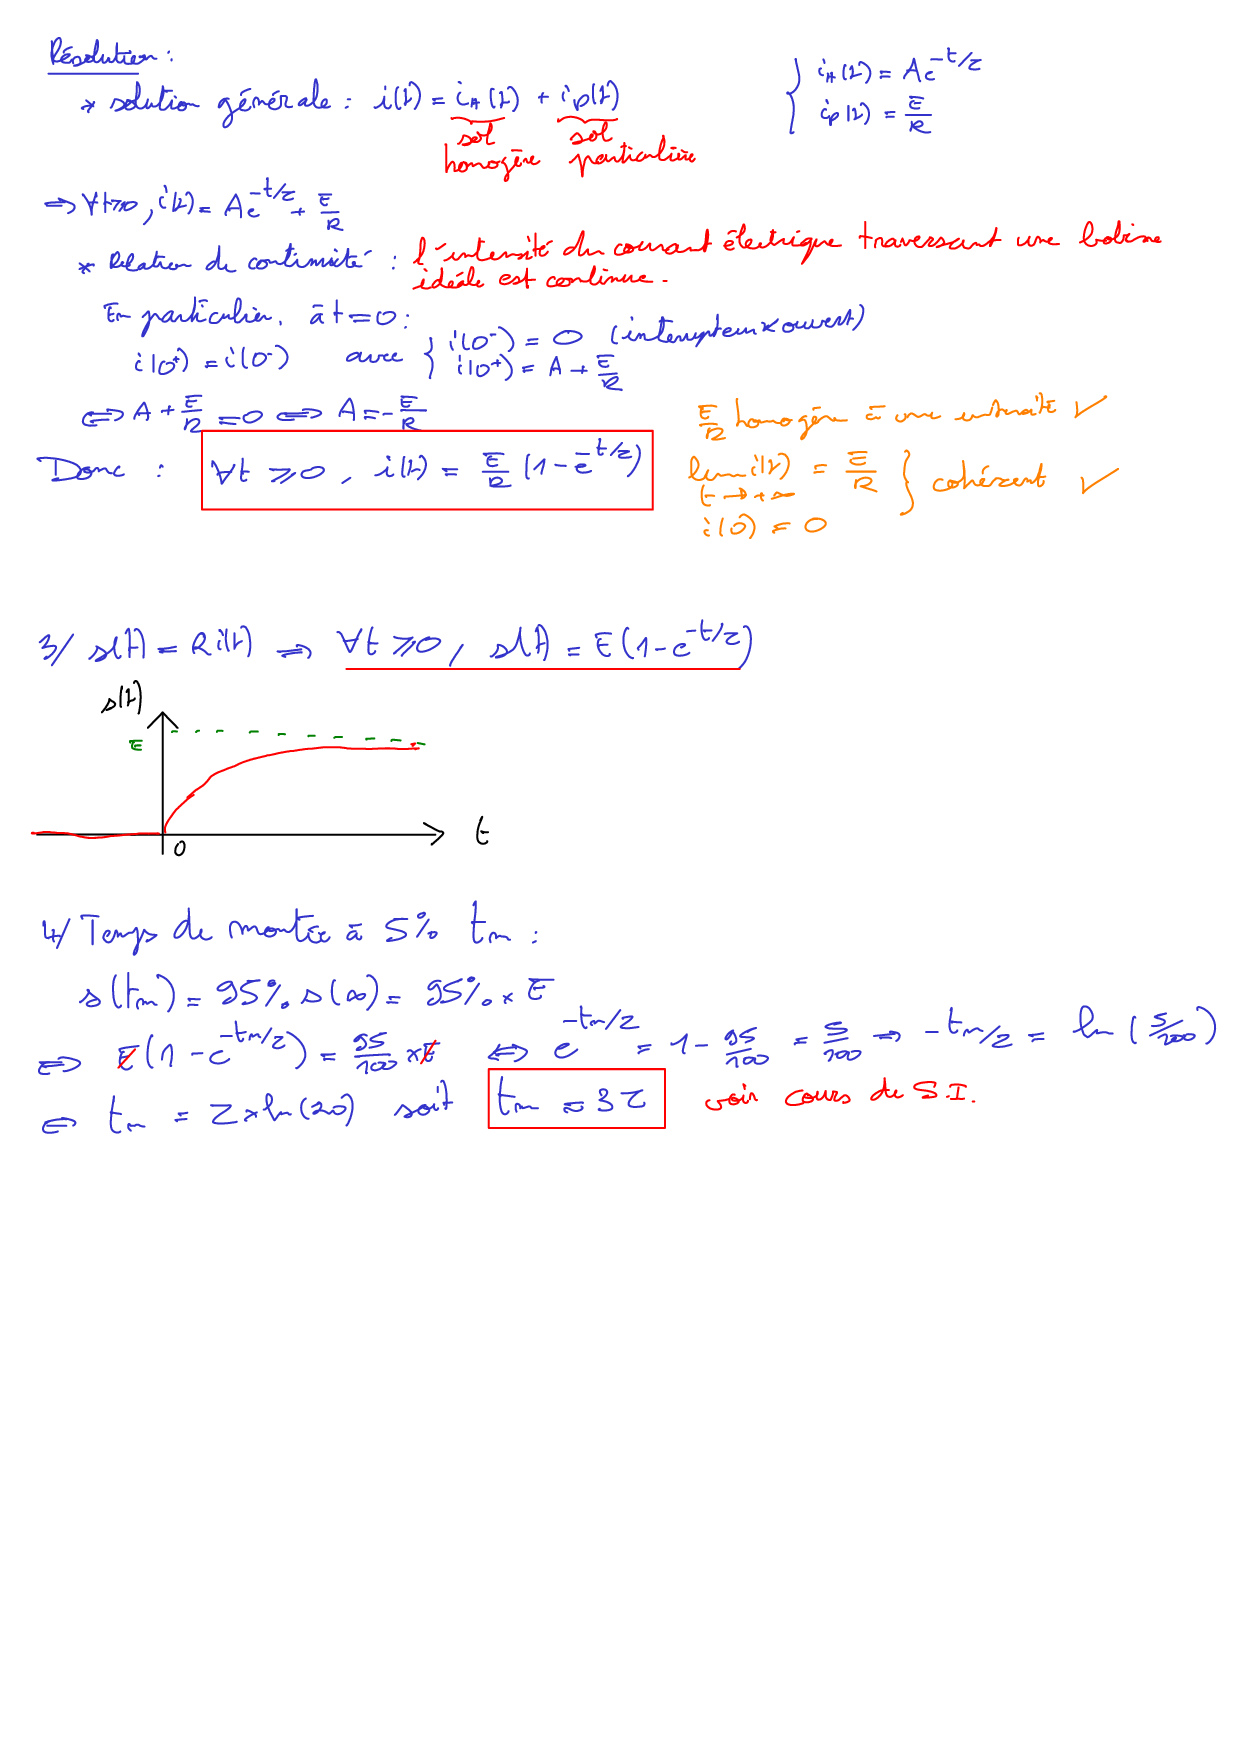 Résolution :
* solution générale : i(t) = iH(t) + ip(t)
sol homogène
sol particulière
{ iH(t) = Ae^{-t/τ}
ip(t) = E/R
⇒ ∀t≥0, i(t) = Ae^{-t/τ} + E/R
* Relation de continuité : l'intensité du courant électrique traversant une bobine
idéale est continue.
En particulier, à t=0 :
i(0⁺) = i(0⁻) avec { i(0⁻) = 0 (interrupteur K ouvert)
i(0⁺) = A + E/R
⇔ A + E/R = 0 ⇔ A = -E/R
Donc : ∀t ≥ 0, i(t) = E/R (1 - e^{-t/τ})
E/R homogène à une intensité ✓
lim i(t) = E/R } cohérent ✓
t → +∞
i(0) = 0
3/ s(t) = Ri(t) ⇒ ∀t ≥ 0, s(t) = E(1 - e^{-t/τ})
s(t)
E
0
t
4/ Temps de montée à 5% tm :
s(tm) = 95% s(∞) = 95% × E
⇔ E(1 - e^{-tm/τ}) = 95/100 × E ⇔ e^{-tm/τ} = 1 - 95/100 = 5/100 ⇒ -tm/τ = ln(5/100)
⇔ tm = τ × ln(20) soit tm ≈ 3τ voir cours de S.I.